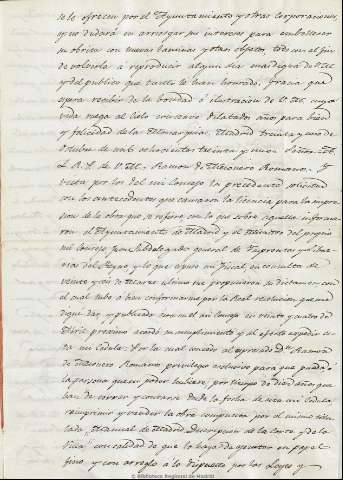 se le ofrecen por el Ayuntamiento y otras corporaciones,
y no dudará en arriesgar sus intereses para embellecer
su obrita con nuevas laminas y otros objetos, todo con el fin
de volverla á reproducir algun dia mas digna de V.M.
y del publico que tanto le han honrado. Gracia que
espera recibir de la bondad é ilustracion de V.M. cuya
vida ruega al Cielo conserve dilatados años para bien
y felicidad de la Monarquia. Madrid treinta y uno de
Octubre de mil ochocientos treinta y uno = Señor = A
L. R. P. de V.M. = Ramon de Mesonero Romanos. = Y
vista por los del mi Consejo la precedente solicitud
con los antecedentes que causaron la licencia para la impre-
sion de la obra que se refiere con lo que sobre aquella informa-
ron el Ayuntamiento de Madrid y el Ministro del propio
mi Consejo, Juez Subdelegado general de Imprentas y Libre-
rias del Reyno y lo que espuso mi Fiscal, en consulta de
veinte y seis de Marzo ultimo me propusieron su dictamen con
el cual tube á bien conformarme por la Real resolucion que me
digné dar, y publicada en el mi Consejo en veinte y cuatro de
Abril proximo acordó su cumplimiento y al efecto espedir es-
ta mi Cedula: Por la cual concedo al espresado Dn. Ramon
de Mesonero Romanos privilegio esclusivo para que pueda ó
la persona que su poder tubiere, por tiempo de diez años que
han de correr y contarse desde la fecha de esta mi Cedula
reimprimir y vender la obra compuesta por el mismo titu-
lada, Manual de Madrid, Descripcion de la Corte y de la
Villa; con calidad de que lo haya de ejecutar en papel
fino, y con arreglo á lo dispuesto por las Leyes y
© Biblioteca Regional de Madrid